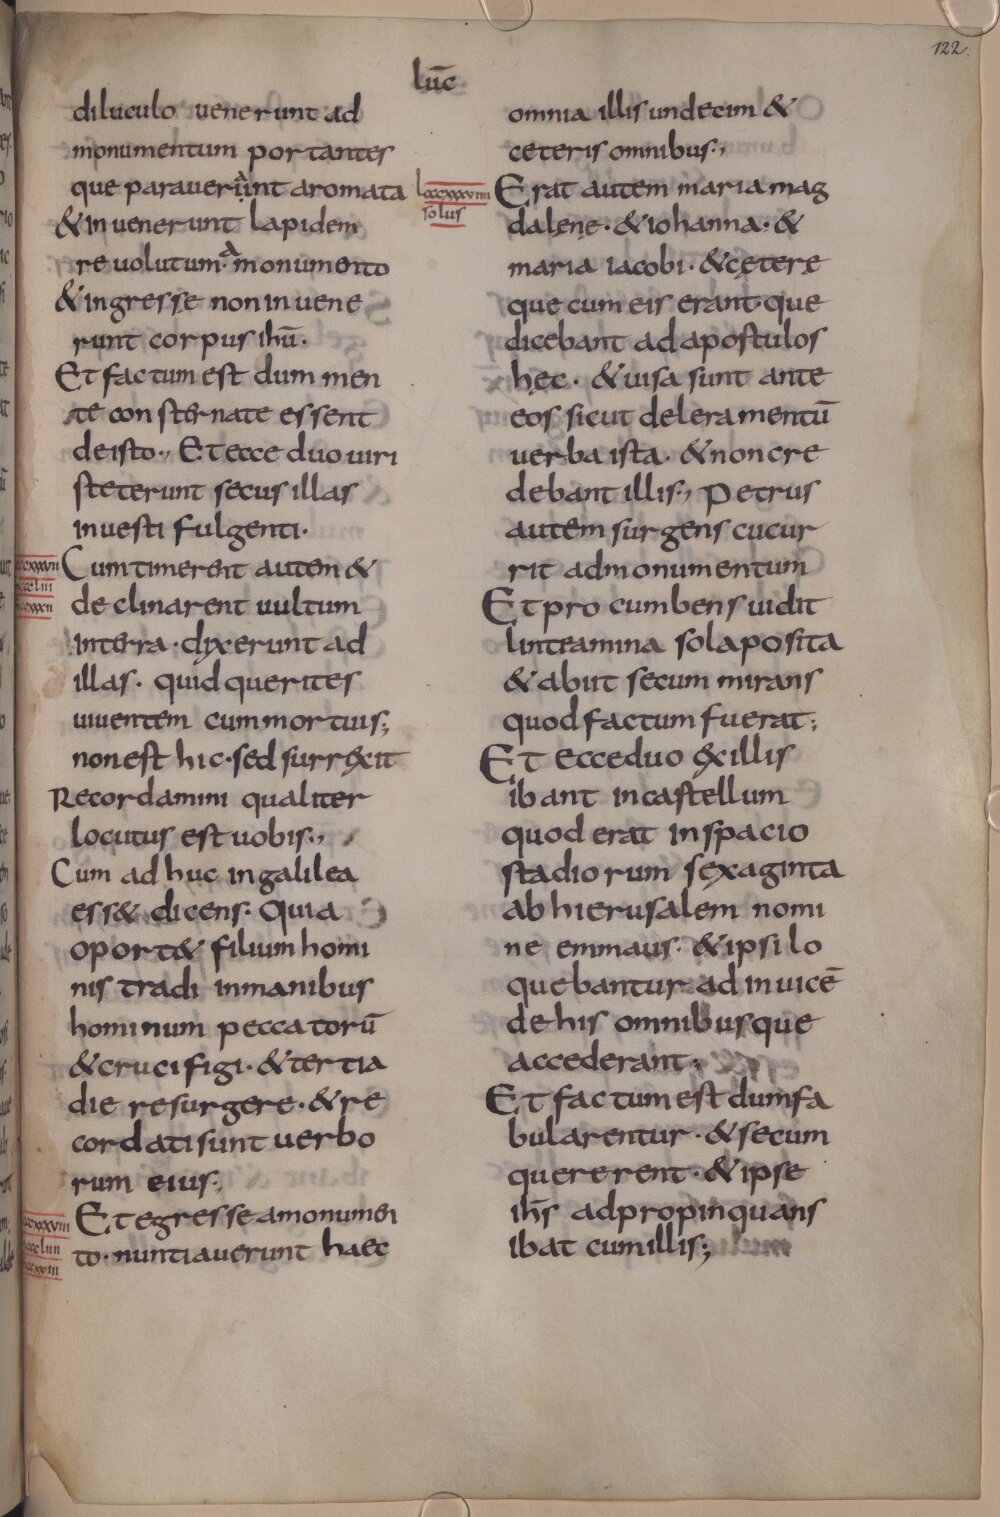 122.
lūc
diluculo venerunt ad
monumentum portantes
que paraverunt aromata
& invenerunt lapidem
revolutum· a monumento
& ingresse non invene
runt corpus ihū·
Et factum est dum men
te consternate essent
de isto·, Et ecce duo viri
steterunt secus illas
in vesti fulgenti·
Cum timerent autem &
declinarent vultum
in terra· dixerunt ad
illas· quid querites
viventem cum mortuis;
non est hic· sed surrexit
Recordamini qualiter
locutus est vobis·,
Cum ad huc in galilea
ess& dicens· Quia
oport& filium homi
nis tradi in manibus
hominum peccatorū
& crucifigi· & tertia
die resurgere· & re
cordati sunt verbo
rum eius·,
Et egresse a monumen
to· nuntiaverunt haec
omnia illis undecim &
ceteris omnibus·,
solus
Erat autem maria mag
dalene· & iohanna· &
maria iacobi· & cętere
que cum eis erant· que
dicebant ad apostulos
hęc· & visa sunt ante
eos sicut deleramentū
verba ista· & non cre
debant illis·, Petrus
autem surgens cucur
rit ad monumentum
Et procumbens vidit
linteamina sola posita
& abiit secum mirans
quod factum fuerat;
Et ecce duo ex illis
ibant in castellum
quod erat in spacio
stadiorum sexaginta
ab hierusalem nomi
ne emmaus· & ipsi lo
quebantur ad invicē
de his omnibus que
accederant·,
Et factum est dum fa
bularentur· & secum
quererent· & ipse
ihs̄ adpropinquans
ibat cum illis;